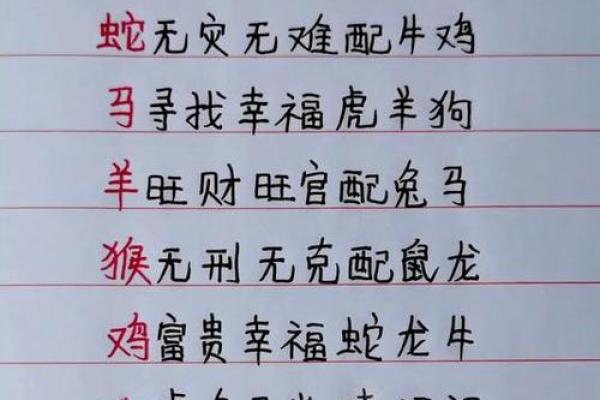 蛇无灾无难配牛鸡
马寻找幸福虎羊狗
羊旺财旺官配兔马
猴无刑无克配鼠龙
鸡富贵幸福蛇龙牛